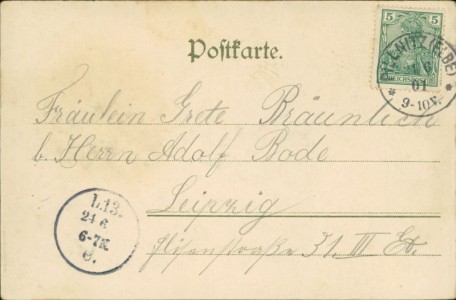 Postkarte.
5 5
REICHSPOST
(ELBE)
6
01
* 9-10V. *
Fräulein Grete Bräunlich
b. Herrn Adolf Bode
Leipzig
31. III Et.
L.13.
24 6
6-7N.